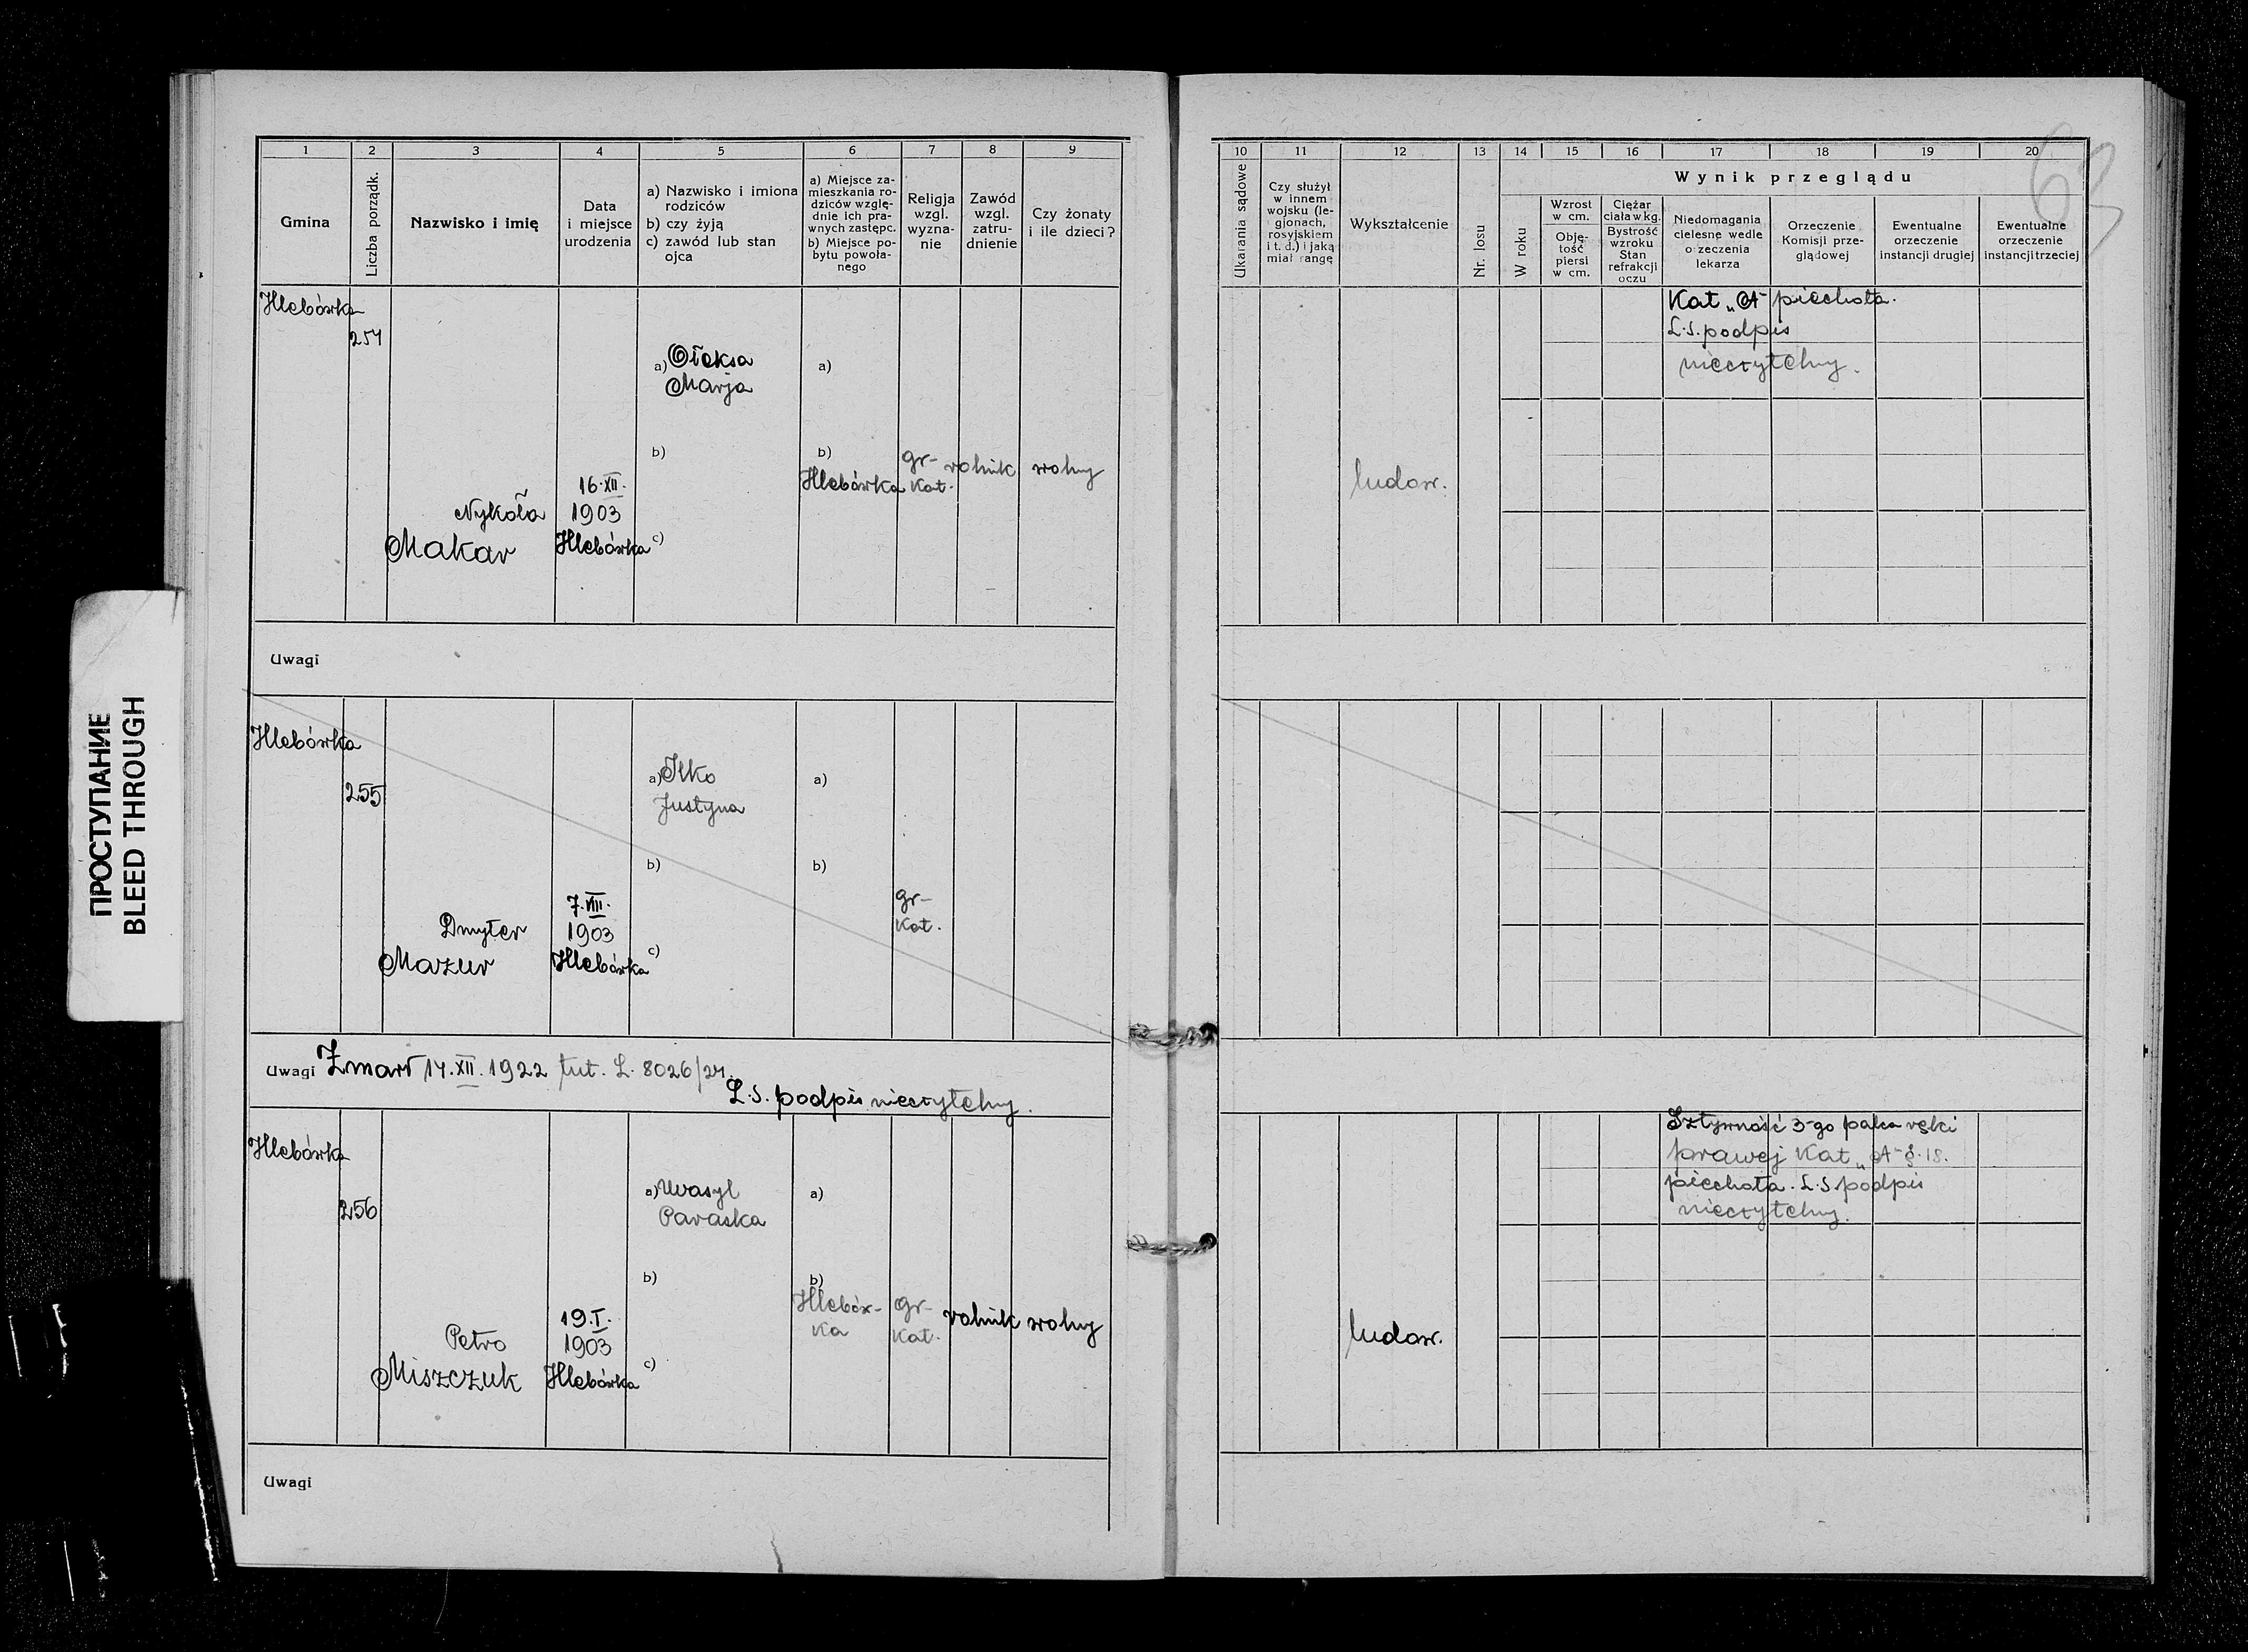 ПРОСТУПАНИЕ
BLEED THROUGH
63
1 2 3 4 5 6 7 8 9
Gmina
Liczba porządk.
Nazwisko i imię
Data
i miejsce
urodzenia
a) Nazwisko i imiona
rodziców
b) czy żyją
c) zawód lub stan
ojca
a) Miejsce za-
mieszkania ro-
dziców wzglę-
dnie ich pra-
wnych zastępc.
b) Miejsce po-
bytu powoła-
nego
Religja
wzgl.
wyzna-
nie
Zawód
wzgl.
zatru-
dnienie
Czy żonaty
i ile dzieci?
10 11 12 13 14 15 16 17 18 19 20
Ukarania sądowe
Czy służył
w innem
wojsku (le-
gjonach,
rosyjskiem
i t. d.) i jaką
miał rangę
Wykształcenie
Nr. losu
Wynik przeglądu
W roku
Wzrost
w cm.
Obję-
tość
piersi
w cm.
Ciężar
ciała w kg.
Bystrość
wzroku
Stan
refrakcji
oczu
Niedomagania
cielesne wedle
o zeczenia
lekarza
Orzeczenie
Komisji prze-
glądowej
Ewentualne
orzeczenie
instancji drugiej
Ewentualne
orzeczenie
instancji trzeciej
Hlebówka
254
Nykoła
Makar
16.XII.
1903
Hlebówka
a) Ołeksa
Marja
b)
c)
a)
b)
Hlebówka
gr-
kat.
rolnik
wolny
ludow.
Kat „A" piechota.
L.S. podpis
nieczytelny.
Uwagi
Hlebówka
255
Dmyter
Mazur
7.VIII.
1903
Hlebówka
a) Ilko
Justyna
b)
c)
a)
b)
gr-
kat.
Uwagi Zmarł 14.XII.1922 tut. L. 8026/24.
L.S. podpis nieczytelny.
Hlebówka
256
Petro
Miszczuk
19.I.
1903
Hlebówka
a) Wasyl
Paraska
b)
c)
a)
b)
Hlebów-
ka
gr-
kat.
rolnik
wolny
ludow.
Sztywność 3-go palca ręki
prawej Kat „A" §.18.
piechota. L.S. podpis
nieczytelny.
Uwagi